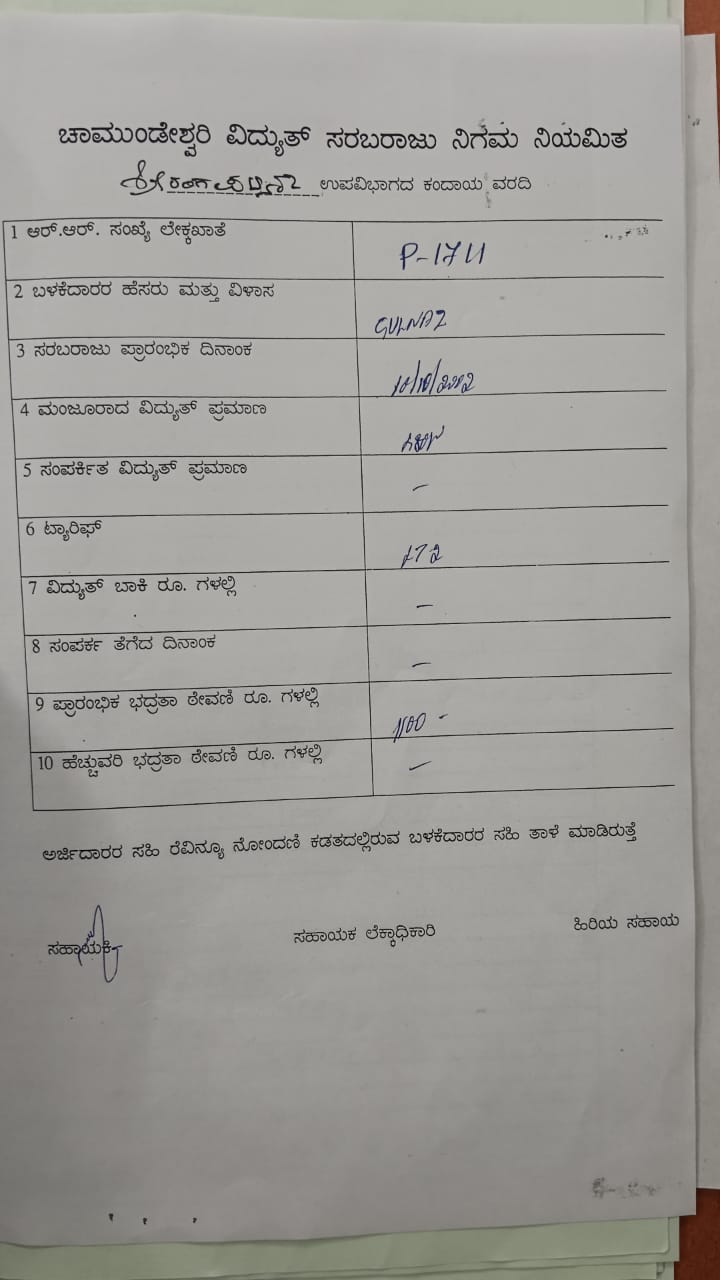 ಚಾಮುಂಡೇಶ್ವರಿ ವಿದ್ಯುತ್ ಸರಬರಾಜು ನಿಗಮ ನಿಯಮಿತ
ಉಪವಿಭಾಗದ ಕಂದಾಯ ವರದಿ
1 ಆರ್.ಆರ್. ಸಂಖ್ಯೆ ಲೆಕ್ಕಖಾತೆ
2 ಬಳಕೆದಾರರ ಹೆಸರು ಮತ್ತು ವಿಳಾಸ
GULNAZ
3 ಸರಬರಾಜು ಪ್ರಾರಂಭಿಕ ದಿನಾಂಕ
4 ಮಂಜೂರಾದ ವಿದ್ಯುತ್ ಪ್ರಮಾಣ
5 ಸಂಪರ್ಕಿತ ವಿದ್ಯುತ್ ಪ್ರಮಾಣ
–
6 ಟ್ಯಾರಿಫ್
7 ವಿದ್ಯುತ್ ಬಾಕಿ ರೂ. ಗಳಲ್ಲಿ
–
8 ಸಂಪರ್ಕ ತೆಗೆದ ದಿನಾಂಕ
–
9 ಪ್ರಾರಂಭಿಕ ಭದ್ರತಾ ಠೇವಣಿ ರೂ. ಗಳಲ್ಲಿ
10 ಹೆಚ್ಚುವರಿ ಭದ್ರತಾ ಠೇವಣಿ ರೂ. ಗಳಲ್ಲಿ
–
ಅರ್ಜಿದಾರರ ಸಹಿ ರೆವಿನ್ಯೂ ನೋಂದಣಿ ಕಡತದಲ್ಲಿರುವ ಬಳಕೆದಾರರ ಸಹಿ ತಾಳೆ ಮಾಡಿರುತ್ತೆ
ಸಹಾಯಕಿ ಸಹಾಯಕ ಲೆಕ್ಕಾಧಿಕಾರಿ ಹಿರಿಯ ಸಹಾಯ